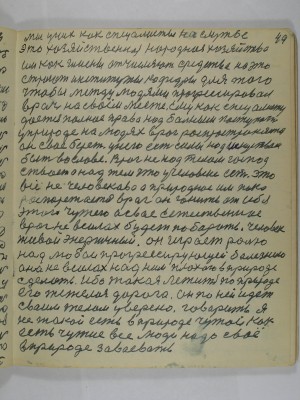 49
мы учим как специалисты на службе
это хозяйственная народная хозяйство
им как имени отчисляют средства на это
строют институты кафедры для того
чтобы между людьми прогрессировал
врач на своем месте. Ему как специалисту
дается полное право над больным поступать
у природе на людях враг распространяется
он свое берет, у него есть силы над
быть во славе. Враг не над телом господ
ствовать над тем что у человека есть. Это
все не человеково а природное им тоже
враг он гонит от себя
этого чужого а свое естественное
враг не в силах будет побороть. Человек
живой энергичный, он играет ролю
над любой прогрессирующей болезнию
она не в силах над ним плохого в природе
сделать. Ибо такая летит по природе
его тяжелая дорога, он по ней идет
своим телом уверено, говорить я
не такой есть в природе чужой как
есть чужие все люди надо своё
в природе завоевать